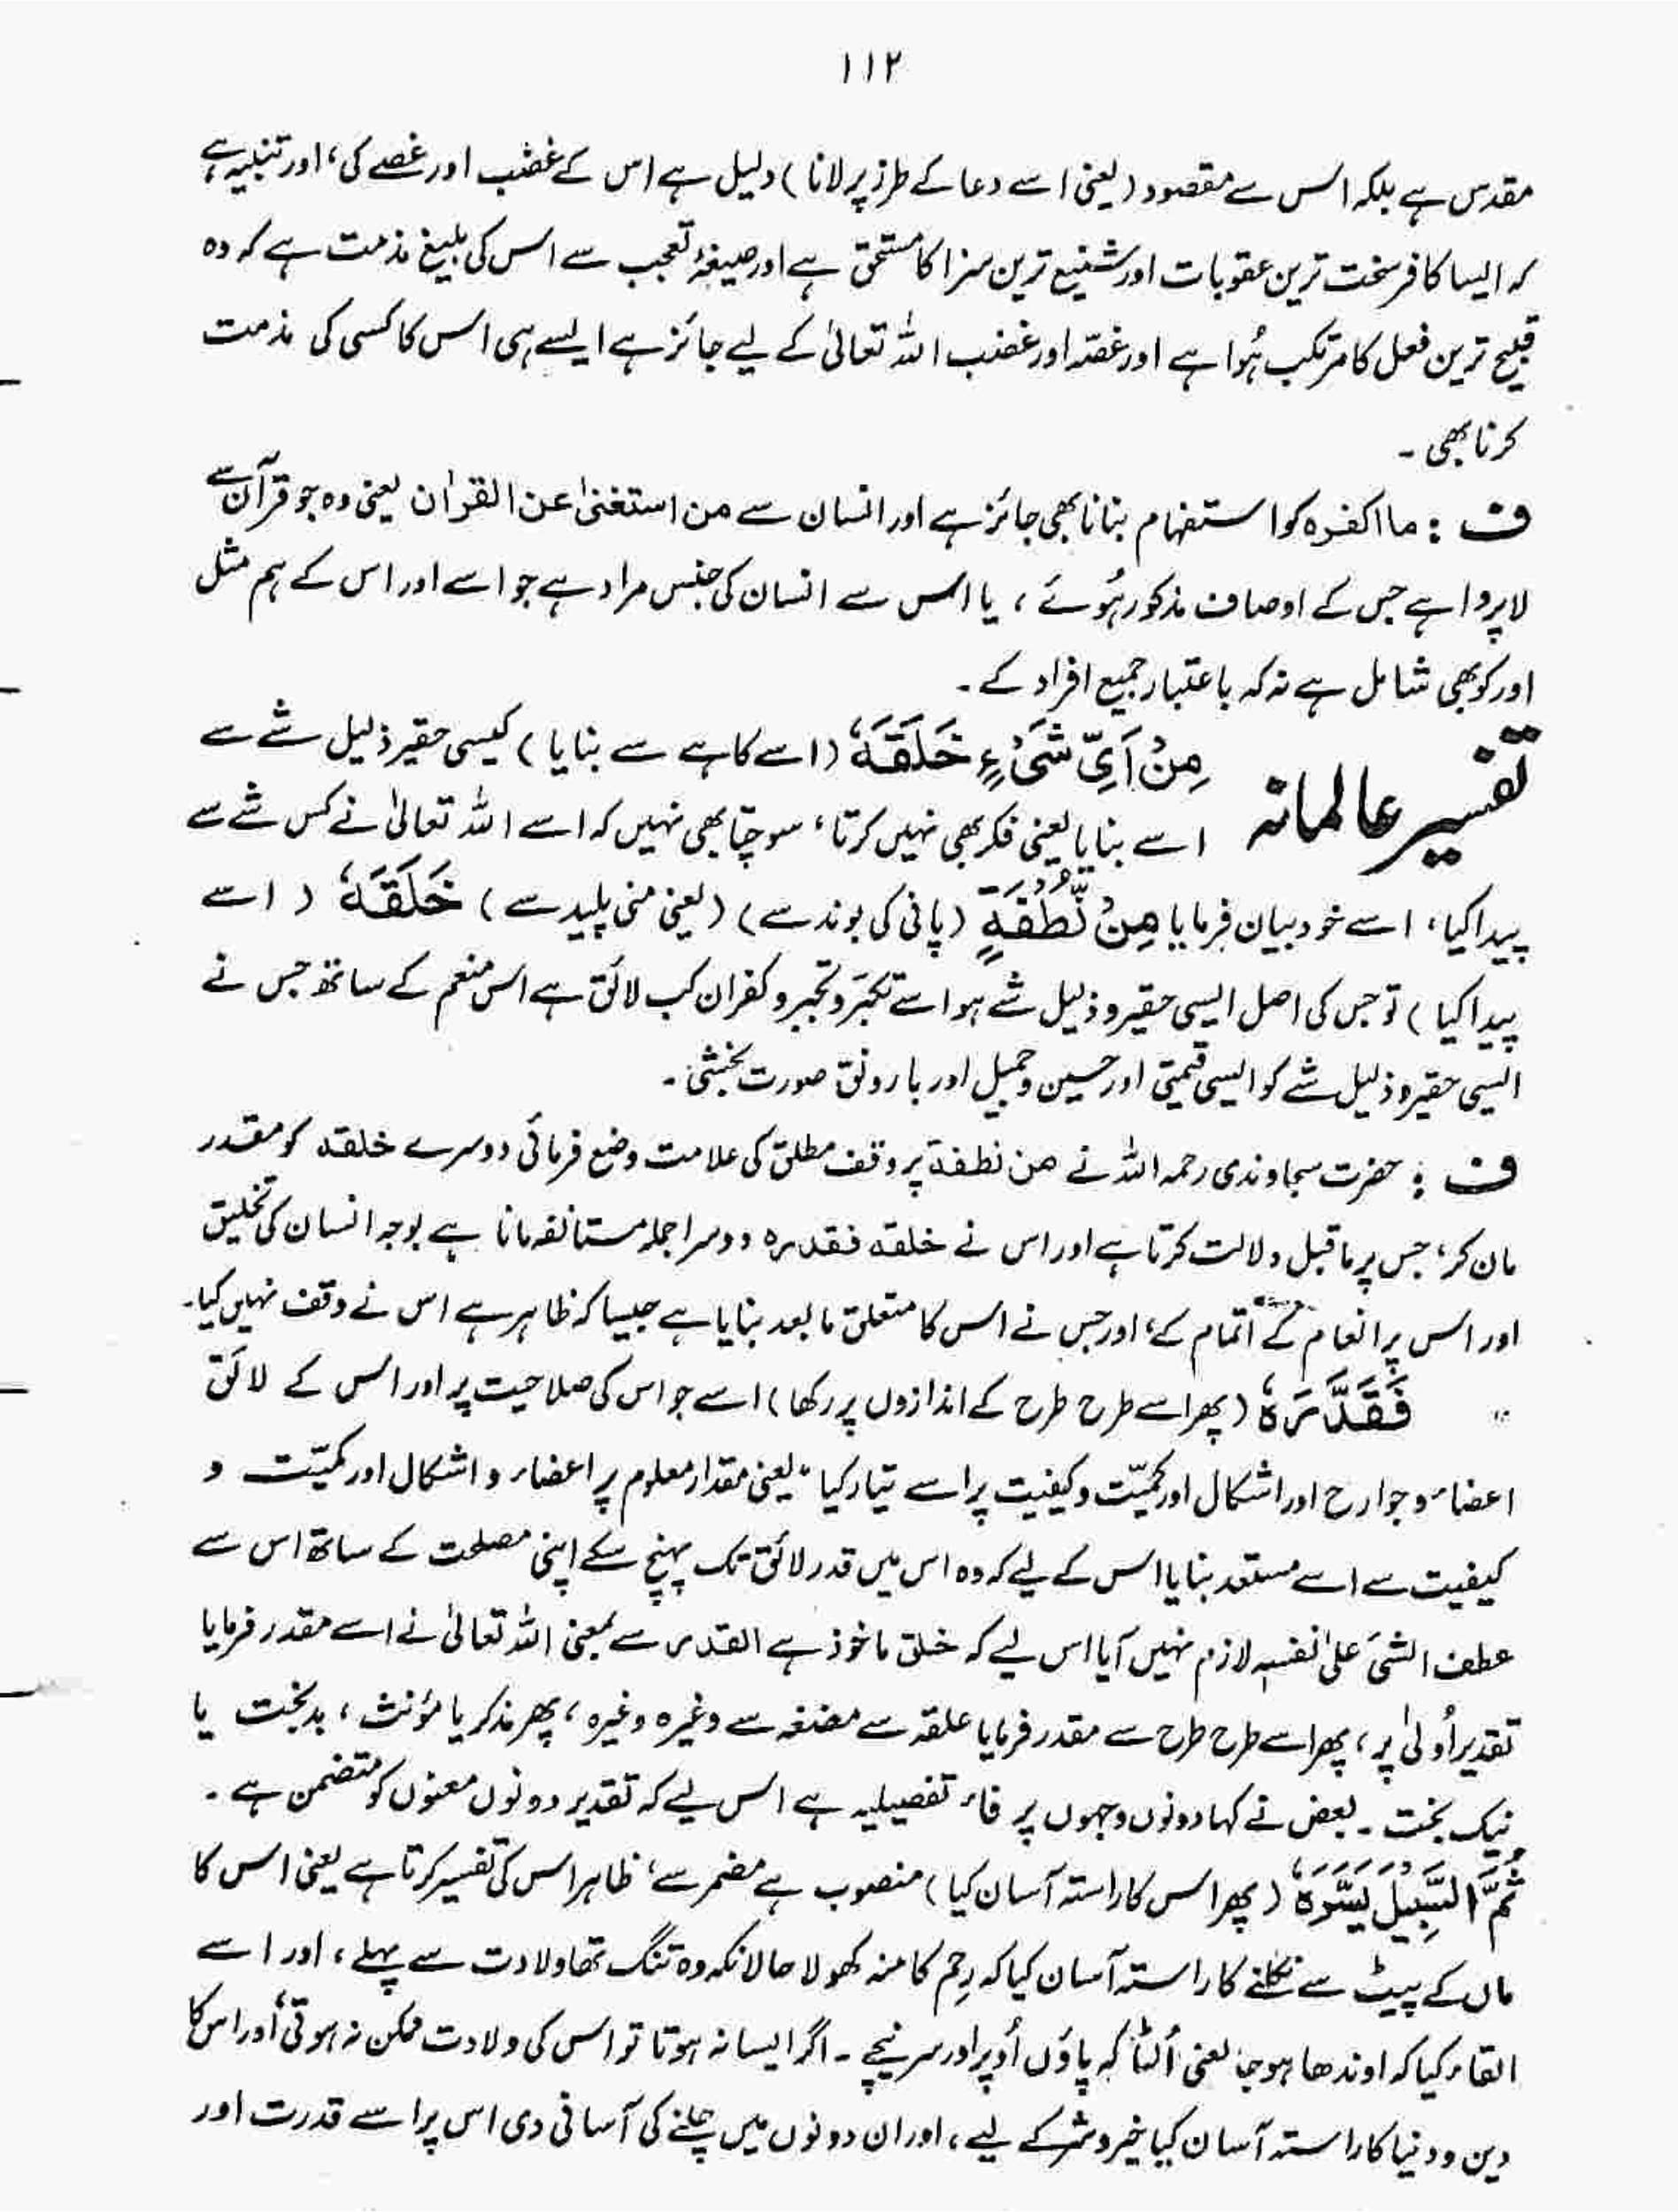 ۱۱۲
مقدس ہے بلکہ اس سے مقصود (یعنی اسے دعا کے طرز پر لانا) دلیل ہے اس کے غضب اور غصے کی، اور تنبیہ ہے
کہ ایسا کافر سخت ترین عقوبات اور شنیع ترین سزا کا مستحق ہے اور صیغۂ تعجب سے اس کی بلیغ مذمت ہے کہ وہ
قبیح ترین فعل کا مرتکب ہُوا ہے اور غصّہ اور غضب اللہ تعالیٰ کے لیے جائز ہے ایسے ہی اس کا کسی کی مذمت
کرنا بھی ۔
ف : ما اکفرہ کو استفہام بنانا بھی جائز ہے اور انسان سے من استغنیٰ عن القرأن یعنی وہ جو قرآن سے
لاپروا ہے جس کے اوصاف مذکور ہُوئے ، یا اس سے انسان کی جنس مراد ہے جو اسے اور اس کے ہم مثل
اور کو بھی شامل ہے نہ کہ باعتبار جمیع افراد کے ۔
تفسیر عالمانہ مِنْ اَیِّ شَیْءٍ خَلَقَہٗ (اسے کاہے سے بنایا) کیسی حقیر ذلیل شے سے
اسے بنایا یعنی فکر بھی نہیں کرتا، سوچتا بھی نہیں کہ اسے اللہ تعالیٰ نے کس شے سے
پیدا کیا، اسے خود بیان فرمایا مِنْ نُّطْفَۃٍ (پانی کی بوند سے) (یعنی منی پلید سے) خَلَقَہٗ ( اسے
پیدا کیا ) تو جس کی اصل ایسی حقیر و ذلیل شے ہو اسے تکبّر و تجبر و کفران کب لائق ہے اس منعم کے ساتھ جس نے
ایسی حقیر و ذلیل شے کو ایسی قیمتی اور حسین و جمیل اور بارونق صورت بخشی ۔
ف : حضرت سجاوندی رحمہ اللہ نے من نطفۃ پر وقف مطلق کی علامت وضع فرمائی دوسرے خلقہ کو مقدر
مان کر، جس پر ماقبل دلالت کرتا ہے اور اس نے خلقہ فقدرہ دوسرا جملہ مستانفہ مانا ہے بوجہ انسان کی تخلیق
اور اس پر انعام کے اتمام کے، اور جس نے اس کا متعلق ما بعد بنایا ہے جیسا کہ ظاہر ہے اس نے وقف نہیں کیا۔
فَقَدَّرَہٗ (پھر اسے طرح طرح کے اندازوں پر رکھا) اسے جو اس کی صلاحیت پر اور اس کے لائق
اعضاء و جوارح اور اشکال اور کمیّت و کیفیت پر اسے تیار کیا ، یعنی مقدار معلوم پر اعضاء و اشکال اور کمیّت و
کیفیت سے اسے مستعد بنایا اس کے لیے کہ وہ اس میں قدر لائق تک پہنچ سکے اپنی مصلحت کے ساتھ اس سے
عطف الشئ علیٰ نفسہٖ لازم نہیں آیا اس لیے کہ خلق ماخوذ ہے القدر سے بمعنی اللہ تعالیٰ نے اسے مقدر فرمایا
تقدیر اُولیٰ پر ، پھر اسے طرح طرح سے مقدر فرمایا علقہ سے مضغہ سے وغیرہ وغیرہ ، پھر مذکر یا مؤنث ، بدبخت یا
نیک بخت ۔ بعض نے کہا دونوں وجہوں پر فاء تفصیلیہ ہے اس لیے کہ تقدیر دونوں معنوں کو متضمن ہے ۔
ثُمَّ السَّبِیْلَ یَسَّرَہٗ (پھر اس کا راستہ آسان کیا) منصوب ہے مضمر سے، ظاہر اس کی تفسیر کرتا ہے یعنی اس کا
ماں کے پیٹ سے نکلنے کا راستہ آسان کیا کہ رحِم کا منہ کھولا حالانکہ وہ تنگ تھا ولادت سے پہلے ، اور اسے
القاء کیا کہ اوندھا ہوجا یعنی اُلٹا کہ پاؤں اُوپر اور سر نیچے ۔ اگر ایسا نہ ہوتا تو اس کی ولادت ممکن نہ ہوتی، اور اس کا
دین و دنیا کا راستہ آسان کیا خیر و شر کے لیے ، اور ان دونوں میں چلنے کی آسانی دی اس پر اسے قدرت اور